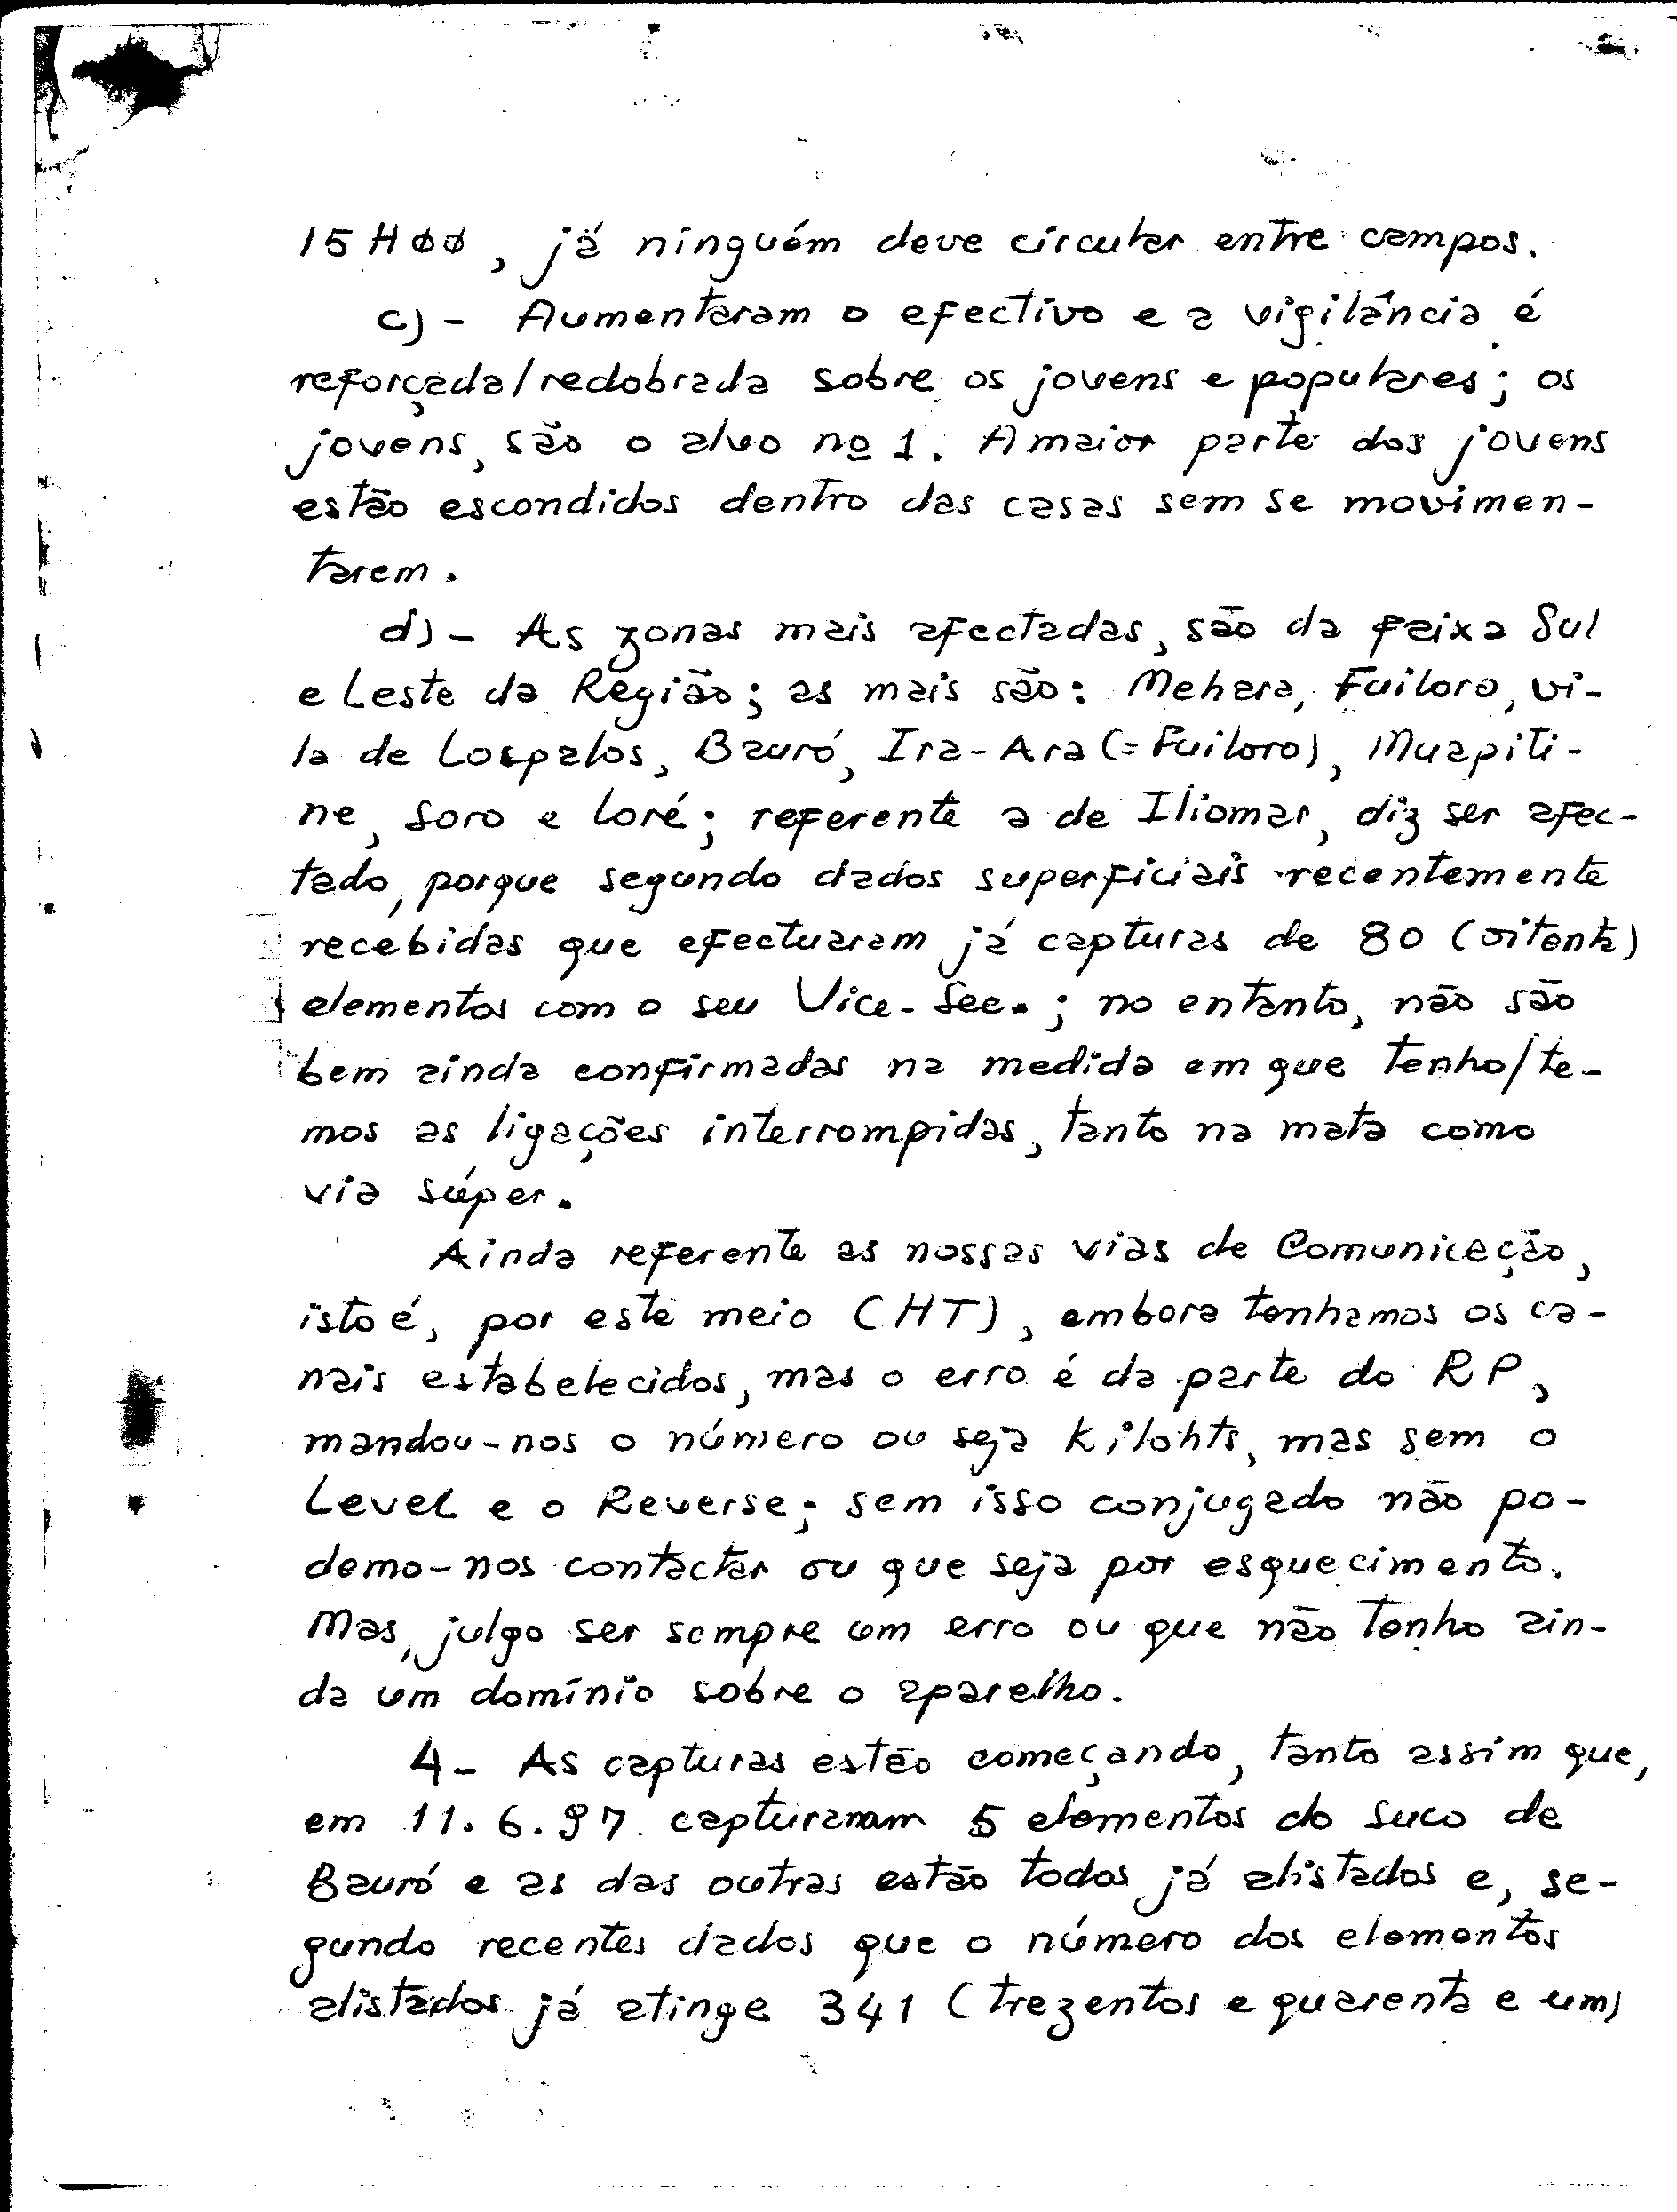 15HØØ, já ninguém deve circular entre campos.
c) - Aumentaram o efectivo e a vigilância é
reforçada/redobrada sobre os jovens e populares; os
jovens, são o alvo nº 1. A maior parte dos jovens
estão escondidos dentro das casas sem se movimen-
tarem.
d) - As zonas mais afectadas, são da faixa Sul
e Leste da Região; as mais são: Mehara, Fuiloro, vi-
la de Lospalos, Bauró, Ira-Ara (= Fuiloro), Muapiti-
ne, Soro e Loré; referente a de Iliomar, diz ser afec-
tado, porque segundo dados superficiais recentemente
recebidas que efectuaram já capturas de 80 (oitenta)
elementos com o seu Vice-Sec.; no entanto, não são
bem ainda confirmadas na medida em que tenho/te-
mos as ligações interrompidas, tanto na mata como
via súper.
Ainda referente as nossas vias de Comunicação,
isto é, por este meio (HT), embora tenhamos os ca-
nais estabelecidos, mas o erro é da parte do RP,
mandou-nos o número ou seja Kilohts, mas sem o
Level e o Reverse; sem isso conjugado não po-
demo-nos contactar ou que seja por esquecimento.
Mas, julgo ser sempre um erro ou que não tenho ain-
da um domínio sobre o aparelho.
4- As capturas estão começando, tanto assim que,
em 11.6.97 capturaram 5 elementos do Suco de
Bauró e as das outras estão todos já alistados e, se-
gundo recentes dados que o número dos elementos
alistados já atinge 341 (trezentos e quarenta e um)